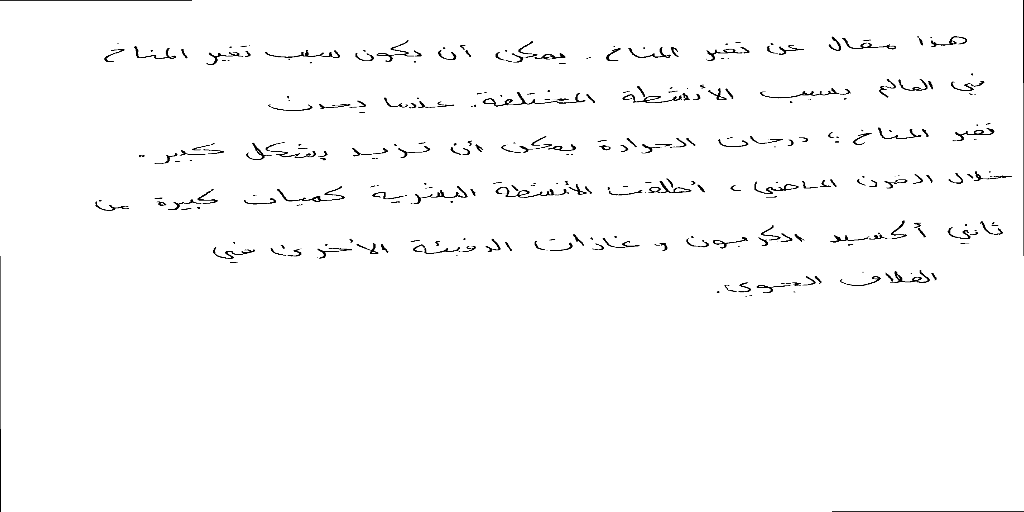 هذا مقال عن تغير المناخ. يمكن أن يكون سبب تغير المناخ
في العالم بسبب الأنشطة المختلفة. عندما يحدث
تغير المناخ، درجات الحرارة يمكن أن تزيد بشكل كبير.
خلال القرن الماضي، أطلقت الأنشطة البشرية كميات كبيرة من
ثاني أكسيد الكربون و غازات الدفيئة الأخرى في
الغلاف الجوي.